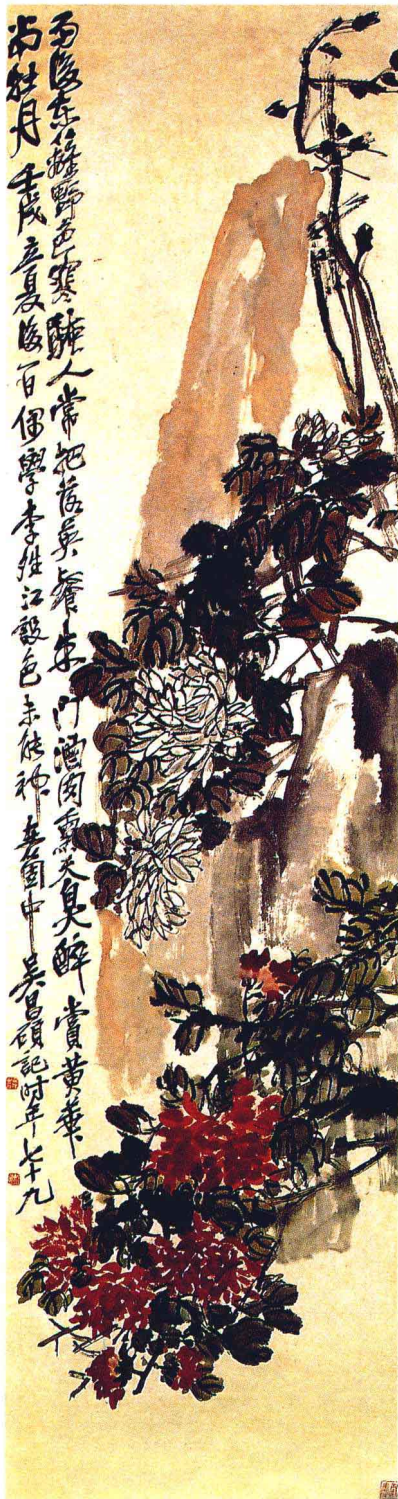 雨後東籬野色寒騷人常把落英餐朱門酒肉熏天臭醉賞黃華
當牡丹 壬戌立夏後一日偶學李晴江設色未能神在箇中吳昌碩記時年七十九